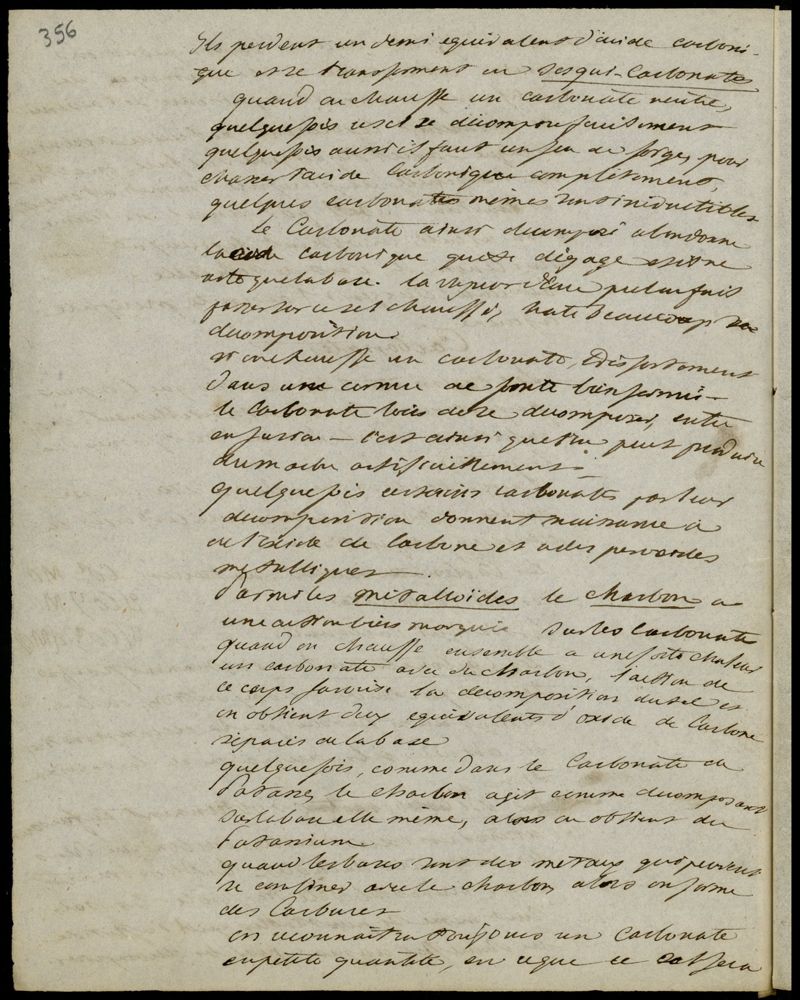 356
Ils perdent un demi equivalent d'acide carboni-
que et se transforment en sesqui-Carbonate
quand on chauffe un carbonate neutre,
quelquefois il se decompose facilement
quelquefois aussi il faut un feu de forges pour
chasser l'acide Carbonique completement,
quelques carbonates mêmes sont
Le Carbonate ainsi decomposé abandonne
l'acide carbonique qui se dégage et il ne
reste que la base. la vapeur d'eau que l'on fait
passer sur ce sel chauffé, hate beaucoup sa
decomposition
si on chauffe un carbonate,
dans une cornue de fonte bien fermé -
le Carbonate loin de se decomposer, entre
en fusion - c'est ainsi que l'on peut produire
du marbre artificiellement -
quelquefois certains carbonates par leur
decomposition donnent naissance à
de l'oxide de Carbone et a des peroxides
metalliques.
Parmi les métalloïdes le charbon a
une action bien marquée sur les Carbonates
quand on chauffe ensemble a une forte chaleur
un carbonate avec du charbon, l'action de
ce corps favorise la decomposition du sel et
on obtient deux equivalents d'oxide de Carbone
séparés de la base
quelquefois, comme dans le Carbonate de
Potasse, le charbon agit comme decomposant
sur la base elle même, alors on obtient du
Potassium
quand les bases sont des metaux qui peuvent
se combiner avec le charbon, alors on forme
des Carbures
on reconnaitra toujours un Carbonate
en petite quantité, en ce que ce sel sera